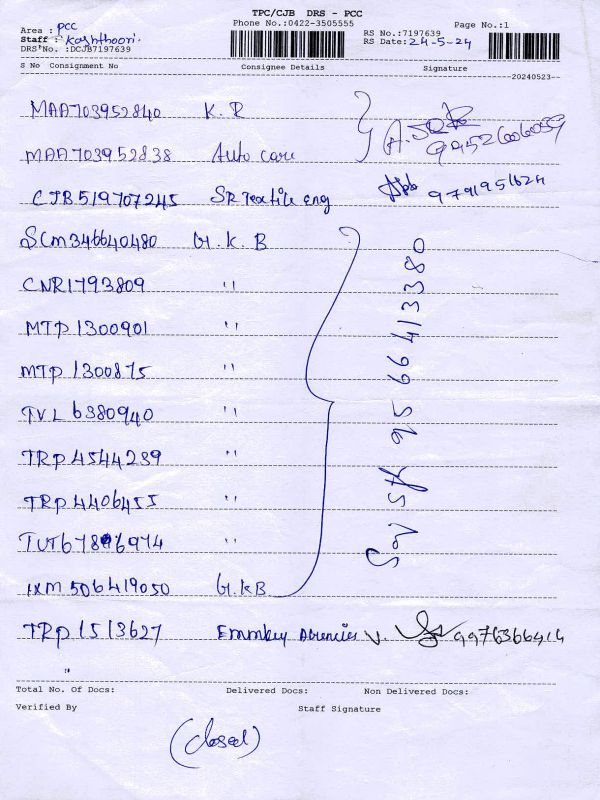 TPC/CJB DRS - PCC
Phone No.:0422-3505555 Page No.:1
Area : PCC
Staff : Kashthoori.
DRS No. :DCJB7197639
RS No.:7197639
RS Date:24-5-24
S No Consignment No Consignee Details Signature
20240523--
MAA703952840 K.R
MAA703952838 Auto care 9952606059
CJB519707245 SR Textile eng 9791951624
SCM346640480 G.K.B
CNR1793809 "
MTP1300901 "
MTP1300875 "
TVL6380940 "
TRP4544239 "
TRP4406455 "
TUT67896974 "
IXM506419050 G.K.B
9566413380
TRP1513627 Emmkey Agencies V. 9976366414
"
Total No. Of Docs: Delivered Docs: Non Delivered Docs:
Verified By Staff Signature
(closed)